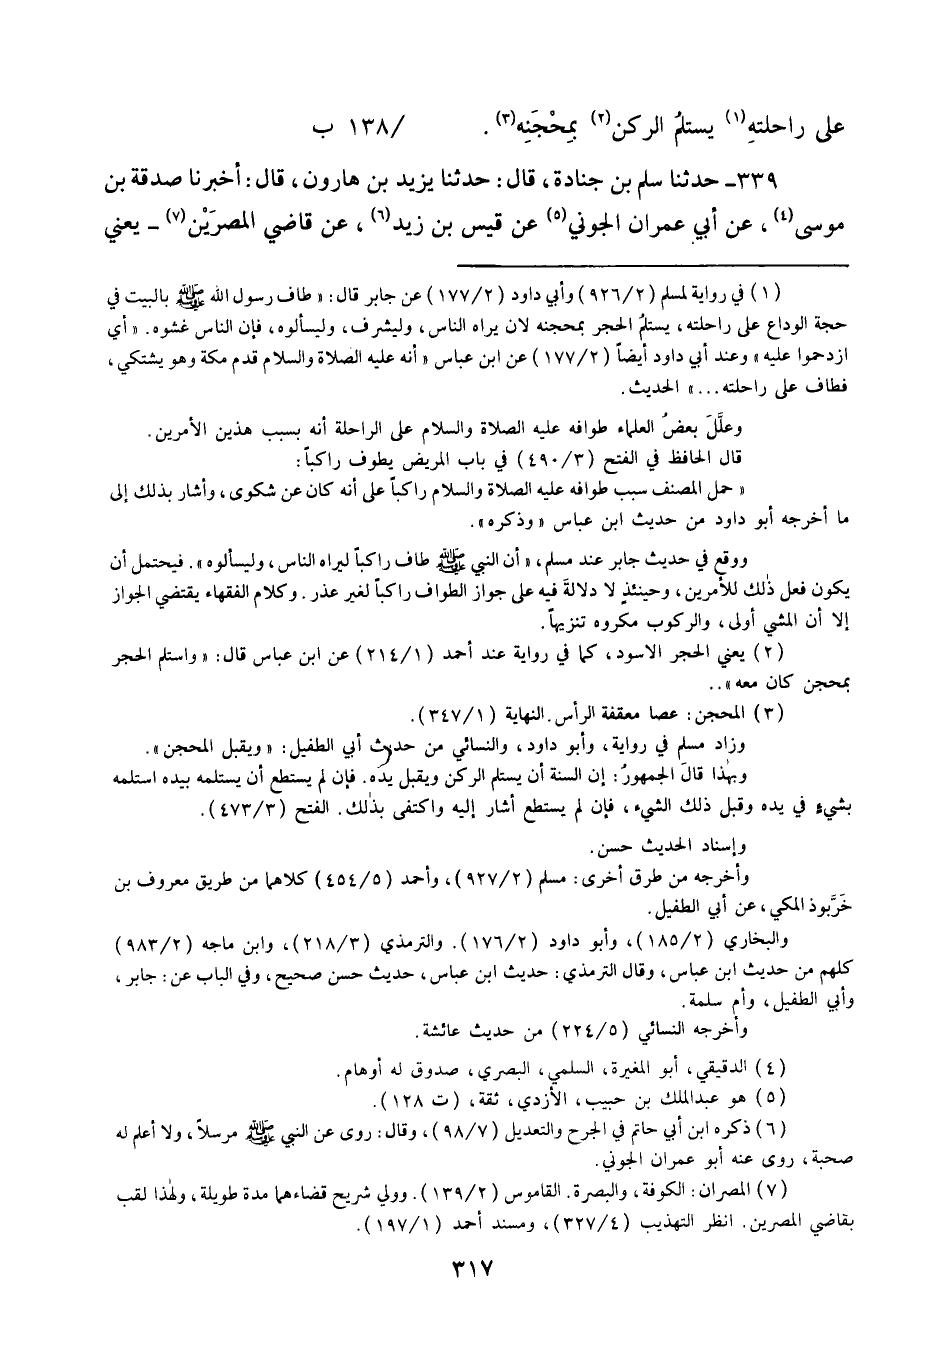 على راحلتهِ(١) يستلمُ الركن(٢) بِمِحْجَنِه(٣). /١٣٨ ب
٣٣٩ـ حدثنا سلم بن جنادة، قال: حدثنا يزيد بن هارون، قال: أخبرنا صدقة بن
موسى(٤)، عن أبي عمران الجوني(٥) عن قيس بن زيد(٦)، عن قاضي المصرَيْن(٧) ـ يعني
(١) في رواية لمسلم (٩٢٦/٢) وأبي داود (١٧٧/٢) عن جابر قال: «طاف رسول الله ﷺ بالبيت في
حجة الوداع على راحلته، يستلمُ الحجر بمحجنه لان يراه الناس، وليشرف، وليسألوه، فإن الناس غشوه. «أي
ازدحموا عليه» وعند أبي داود أيضاً (١٧٧/٢) عن ابن عباس «أنه عليه الصلاة والسلام قدم مكة وهو يشتكي،
فطاف على راحلته...» الحديث.
وعلَّلَ بعضُ العلماء طوافه عليه الصلاة والسلام على الراحلة أنه بسبب هذين الأمرين.
قال الحافظ في الفتح (٤٩٠/٣) في باب المريض يطوف راكباً:
«حمل المصنف سبب طوافه عليه الصلاة والسلام راكباً على أنه كان عن شكوى، وأشار بذلك إلى
ما أخرجه أبو داود من حديث ابن عباس «وذكره».
ووقع في حديث جابر عند مسلم، «أن النبي ﷺ طاف راكباً ليراه الناس، وليسألوه». فيحتمل أن
يكون فعل ذٰلك للأمرين، وحينئذٍ لا دلالةَ فيه على جواز الطواف راكباً لغير عذر. وكلام الفقهاء يقتضي الجواز
إلا أن المشي أولى، والركوب مكروه تنزيهاً.
(٢) يعني الحجر الاسود، كما في رواية عند أحمد (٢١٤/١) عن ابن عباس قال: «واستلم الحجر
بمحجن كان معه»..
(٣) المحجن: عصا معقفة الرأس. النهاية (٣٤٧/١).
وزاد مسلم في رواية، وأبو داود، والنسائي من حديث أبي الطفيل: «ويقبل المحجن».
وبهٰذا قالَ الجمهورُ: إن السنة أن يستلم الركن ويقبل يده. فإن لم يستطع أن يستلمه بيده استلمه
بشيءٍ في يده وقبل ذلك الشيء، فإن لم يستطع أشار إليه واكتفى بذٰلك. الفتح (٤٧٣/٣).
وإسناد الحديث حسن.
وأخرجه من طرق أخرى: مسلم (٩٢٧/٢)، وأحمد (٤٥٤/٥) كلاهما من طريق معروف بن
خَرَّبوذ المكي، عن أبي الطفيل.
والبخاري (١٨٥/٢)، وأبو داود (١٧٦/٢). والترمذي (٢١٨/٣)، وابن ماجه (٩٨٣/٢)
كلهم من حديث ابن عباس، وقال الترمذي: حديث ابن عباس، حديث حسن صحيح، وفي الباب عن: جابر،
وأبي الطفيل، وأم سلمة.
وأخرجه النسائي (٢٢٤/٥) من حديث عائشة.
(٤) الدقيقي، أبو المغيرة، السلمي، البصري، صدوق له أوهام.
(٥) هو عبدالملك بن حبيب، الأزدي، ثقة، (ت ١٢٨).
(٦) ذكره ابن أبي حاتم في الجرح والتعديل (٩٨/٧)، وقال: روى عن النبي ﷺ مرسلاً، ولا أعلم له
صحبة، روى عنه أبو عمران الجوني.
(٧) المصران: الكوفة، والبصرة. القاموس (١٣٩/٢). وولي شريح قضاءهما مدة طويلة، ولهٰذا لقب
بقاضي المصرين. انظر التهذيب (٣٢٧/٤)، ومسند أحمد (١٩٧/١).
٣١٧